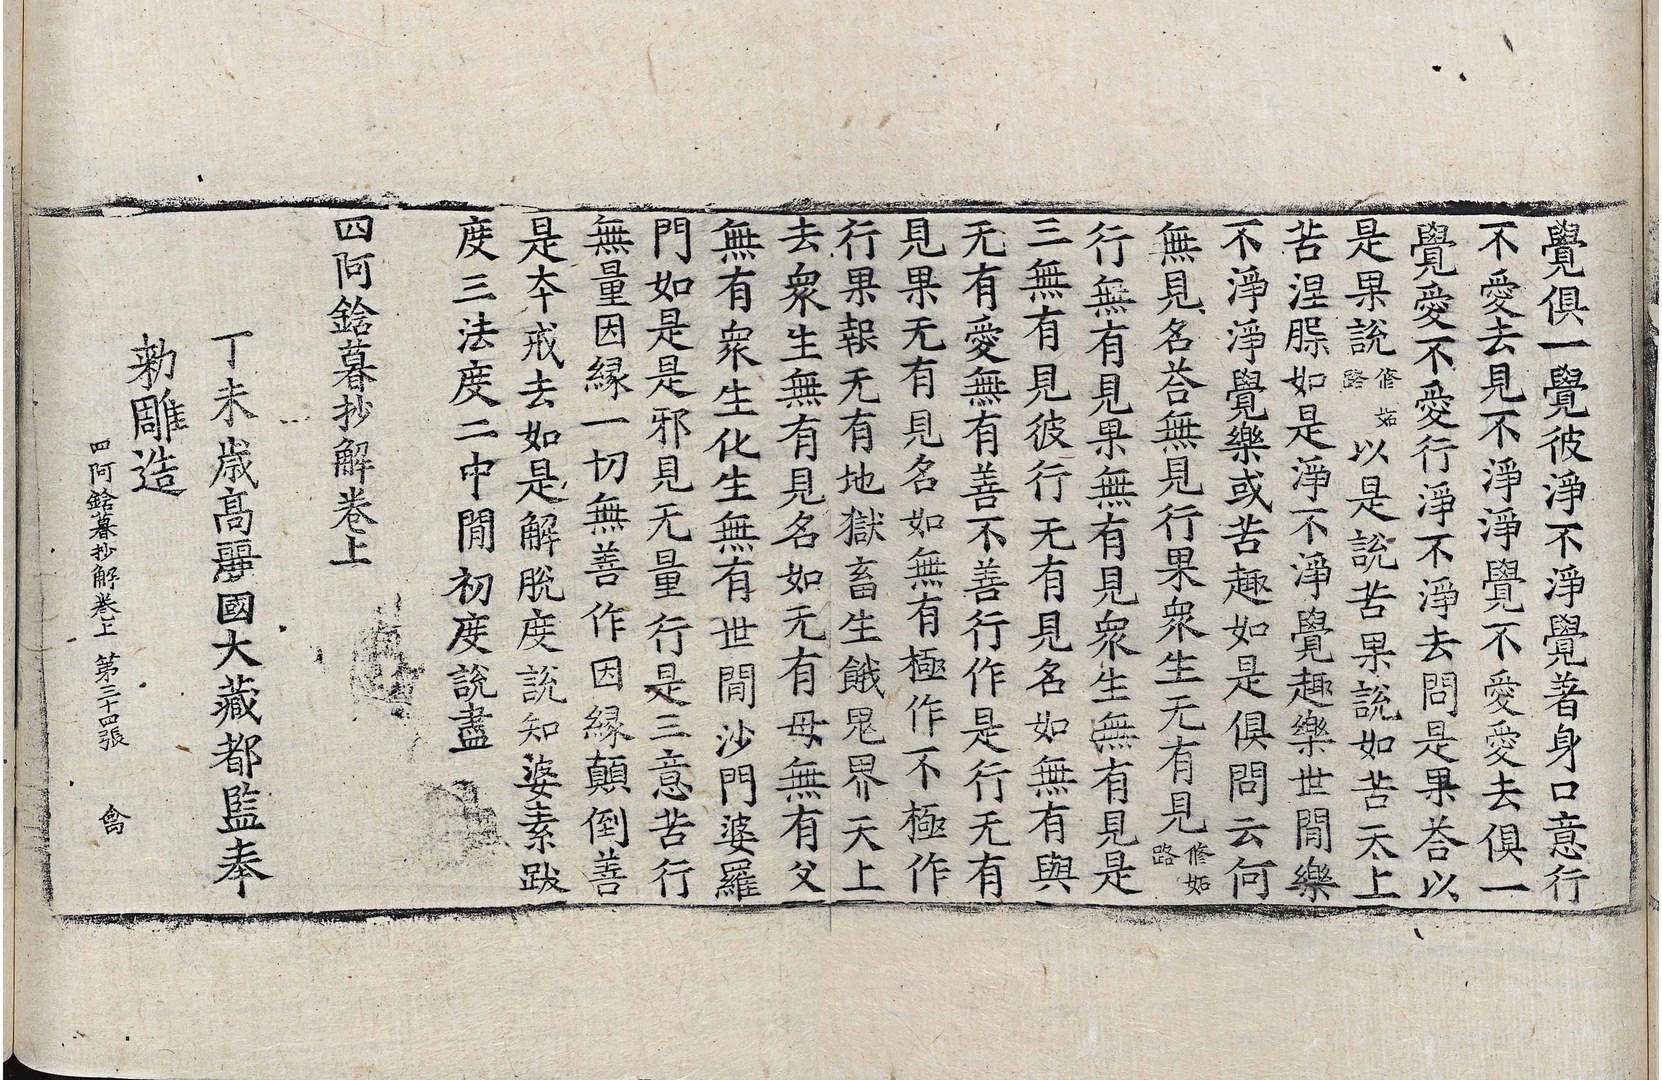 覺俱一覺彼淨不淨覺著身口意行
不愛去見不淨淨覺不愛愛去俱一
覺愛不愛行淨不淨去問是果荅以
是果說修妬路以是說苦果說如苦天上
苦涅𦞦如是淨不淨覺趣樂世閒樂
不淨淨覺樂或苦趣如是俱問云何
無見名荅無見行果衆生无有見修妬路
行無有見果無有見衆生無有見是
三無有見彼行无有見名如無有與
无有愛無有善不善行作是行无有
見果无有見名如無有極作不極作
行果報无有地獄畜生餓鬼界天上
去衆生無有見名如无有母無有父
無有衆生化生無有世閒沙門婆羅
門如是是邪見无量行是三意苦行
無量因緣一切無善作因緣顛倒善
是夲戒去如是解脫度說知婆素跋
度三法度二中閒初度說盡
四阿鋡暮抄解卷上
丁未歲高麗國大藏都監奉
勑雕造
四阿鋡暮抄解卷上 第三十四張 禽